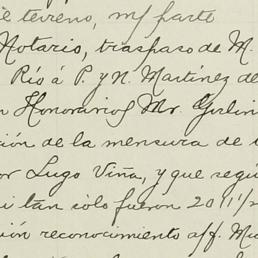 e terreno, mf parte
Notario, traspaso de M.
Río á P. y N. Martinez de
n Honorarios Mr.
ción de la mensura de
or Lugo Viña, y que segú
i tan sólo fueron 20 1/2
ión reconocimiento aff. Mu